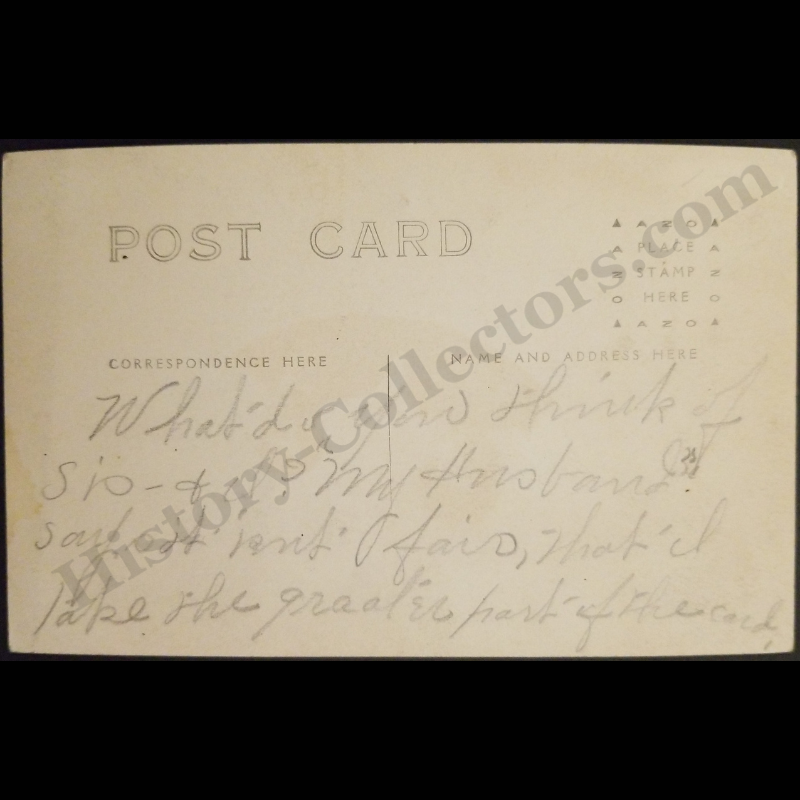 POST CARD
AZO
PLACE
STAMP
HERE
AZO
CORRESPONDENCE HERE
NAME AND ADDRESS HERE
What'd you think of
Sis - & I? My Husband
says it isn't fair, that I'd
take the greater part of the card,
History-Collectors.com